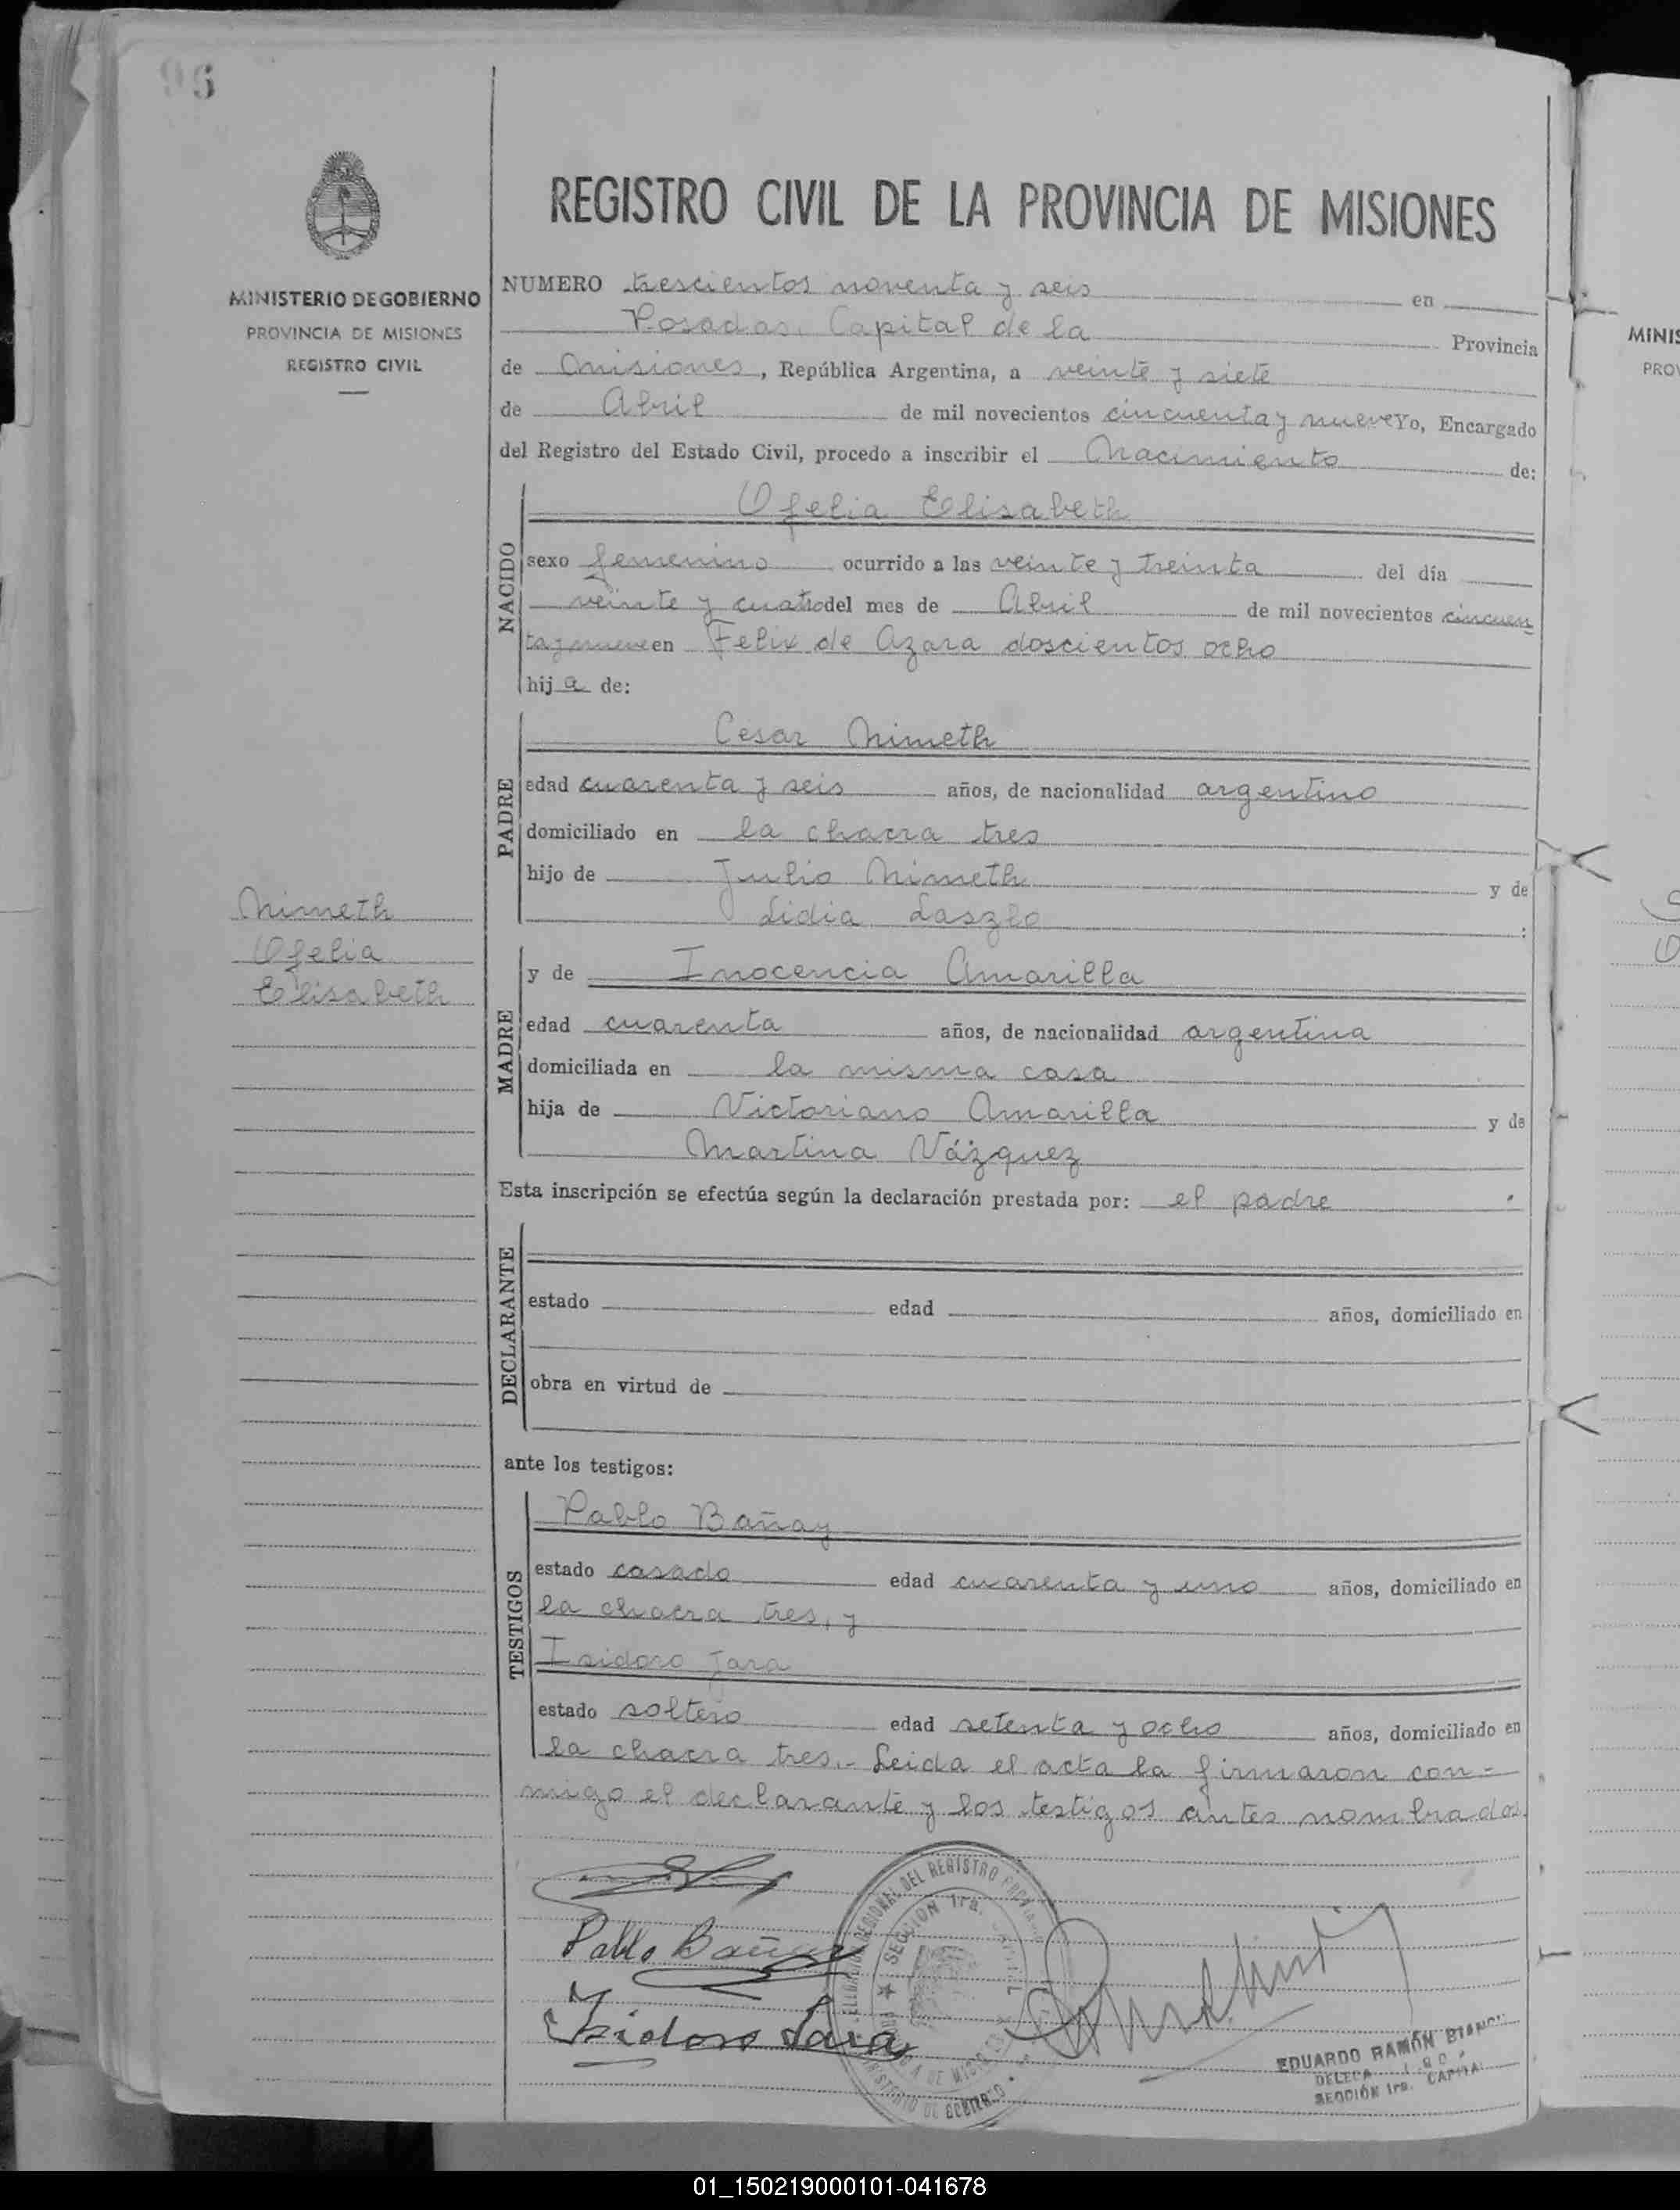 96
REGISTRO CIVIL DE LA PROVINCIA DE MISIONES
MINISTERIO DE GOBIERNO
PROVINCIA DE MISIONES
REGISTRO CIVIL
NUMERO trescientos noventa y seis en
Posadas, Capital de la Provincia
de Misiones, República Argentina, a veinte y siete
de Abril de mil novecientos cincuenta y nueve Yo, Encargado
del Registro del Estado Civil, procedo a inscribir el Nacimiento de:
NACIDO
Ofelia Elisabeth
sexo femenino ocurrido a las veinte y treinta del día
veinte y cuatro del mes de Abril de mil novecientos cincuen
ta y nueve en Felix de Azara doscientos ocho
hij a de:
PADRE
Cesar Nimeth
edad cuarenta y seis años, de nacionalidad argentino
domiciliado en la chacra tres
hijo de Julio Nimeth y de
Lidia Laszlo :
Nimeth
Ofelia
Elisabeth
MADRE
y de Inocencia Amarilla
edad cuarenta años, de nacionalidad argentina
domiciliada en la misma casa
hija de Victoriano Amarilla y de
Martina Vázquez
Esta inscripción se efectúa según la declaración prestada por: el padre .
DECLARANTE
estado edad años, domiciliado en
obra en virtud de
ante los testigos:
TESTIGOS
Pablo Bañay
estado casado edad cuarenta y uno años, domiciliado en
la chacra tres, y
Isidoro Jara
estado soltero edad setenta y ocho años, domiciliado en
la chacra tres.- Leida el acta la firmaron con-
migo el declarante y los testigos antes nombrados.
Pablo Bañay
Isidoro Jara
DEL REGISTRO
SECCION 1ra.
EDUARDO RAMÓN
SECCIÓN 1ra. CAPITAL
MINIS
PRO
01_150219000101-041678